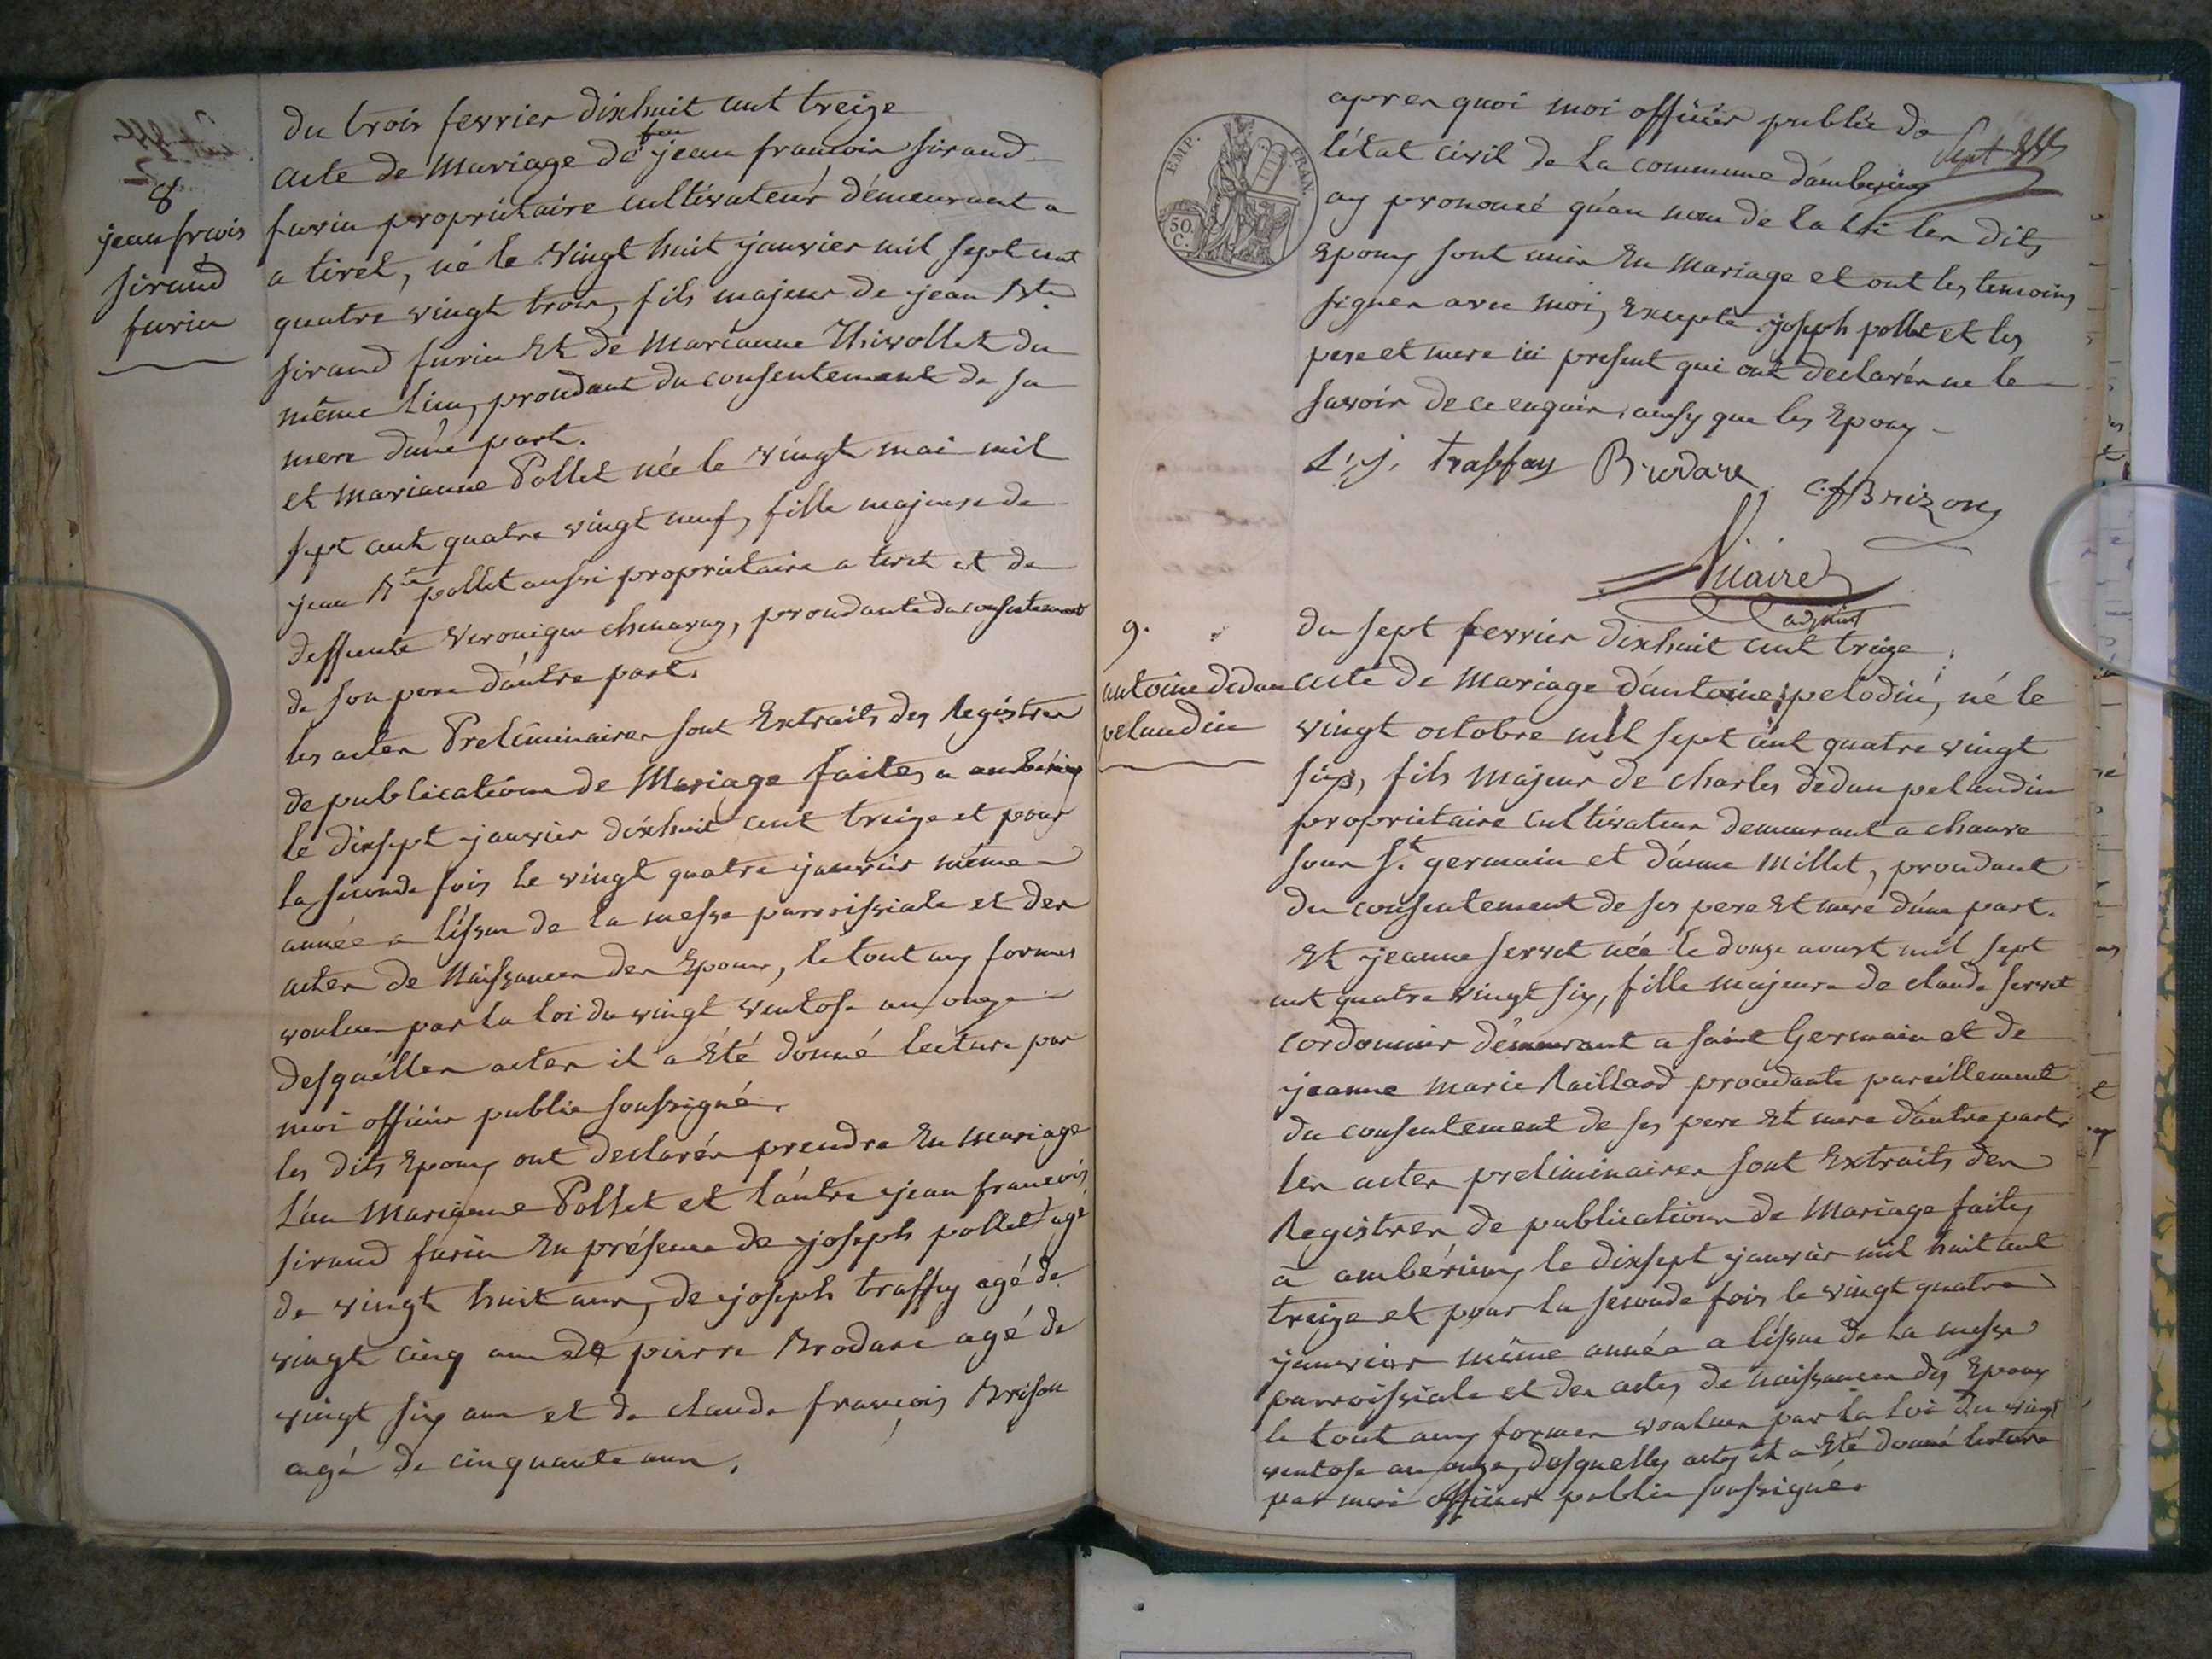 8
jean frcois
sirand
furin
du trois fevrier dixhuit cent treize
acte de mariage de feu jean francois sirand
furin proprietaire cultivateur démeurant a
a tiret, né le vingt huit janvier mil sept cent
quatre vingt trois, fils majeur de jean Bte
sirand furin Et de marianne Thivollet du
même lieu, procédant du consentement de sa
mere d'une part.
et marianne Pollet née le vingt mai mil
sept cent quatre vingt neuf, fille majeure de
jean Bte pollet aussi proprietaire a tiret et de
deffunte veronique chenavas, procédante du consentement
de son pere d'autre part.
les actes Préliminaires sont Extraits des Registres
de publication de Mariage faites a ambérieux
le dixsept janvier dixhuit cent treize et pour
la seconde fois le vingt quatre janvier même
année a l'issue de la messe parroissiale et des
actes de Naissances des Epoux, le tout aux formes
voulues par la loi du vingt ventose an onze
desquelles actes il a Eté donné lecture par
moi officier public soussigné.
les dits Epoux ont déclarés prendre En mariage
l'un Marianne Pollet et l'autre jean francois
sirand furin En présence de joseph pollet agé
de vingt huit ans, de joseph traffay agé de
vingt cinq ans de pierre Brodare agé de
vingt six ans et de claude françois Brison
agé de cinquante ans.
EMP. FRAN.
50 C.
Sept
apres quoi moi officier public de
l'état civil de la commune d'ambérieux
ay prononcé qu'au nom de la loi les dits
Epoux sont unis En mariage et ont les temoins
signés avec moi, Excepté joseph pollet et les
pere et mere ici present qui ont declarés ne le
savoir de ce enquis, ainsy que les Epoux
L. J. traffay Brodare C. f Brizon
adjoint
9.
antoine dedan
pelaudin
du sept fevrier dixhuit cent treize
acte de mariage d'antoine pelodin, né le
vingt octobre mil sept cent quatre vingt
six, fils majeur de charles dedan pelaudin
proprietaire cultivateur demeurant a chauve
sous St. germain et d'anne Millet, procédant
du consentement de ses pere Et mere d'une part.
Et jeanne servet née le douze aoust mil sept
cent quatre vingt six, fille majeure de claude servet
cordonnier démeurant a saint Germain et de
jeanne marie Raillard procédante pareillement
du consentement de ses pere Et mere d'autre part.
les actes preliminaires sont Extraits des
Registres de publication de Mariage faites
à ambérieux le dixsept janvier mil huit cent
treize et pour la seconde fois le vingt quatre
janvier même année a l'issue de la messe
parroissiale et des actes de naissances des Epoux
le tout aux formes voulues par la loi du vingt
ventose an onze, desquelles actes il a Eté donné lecture
par moi officier public soussigné.